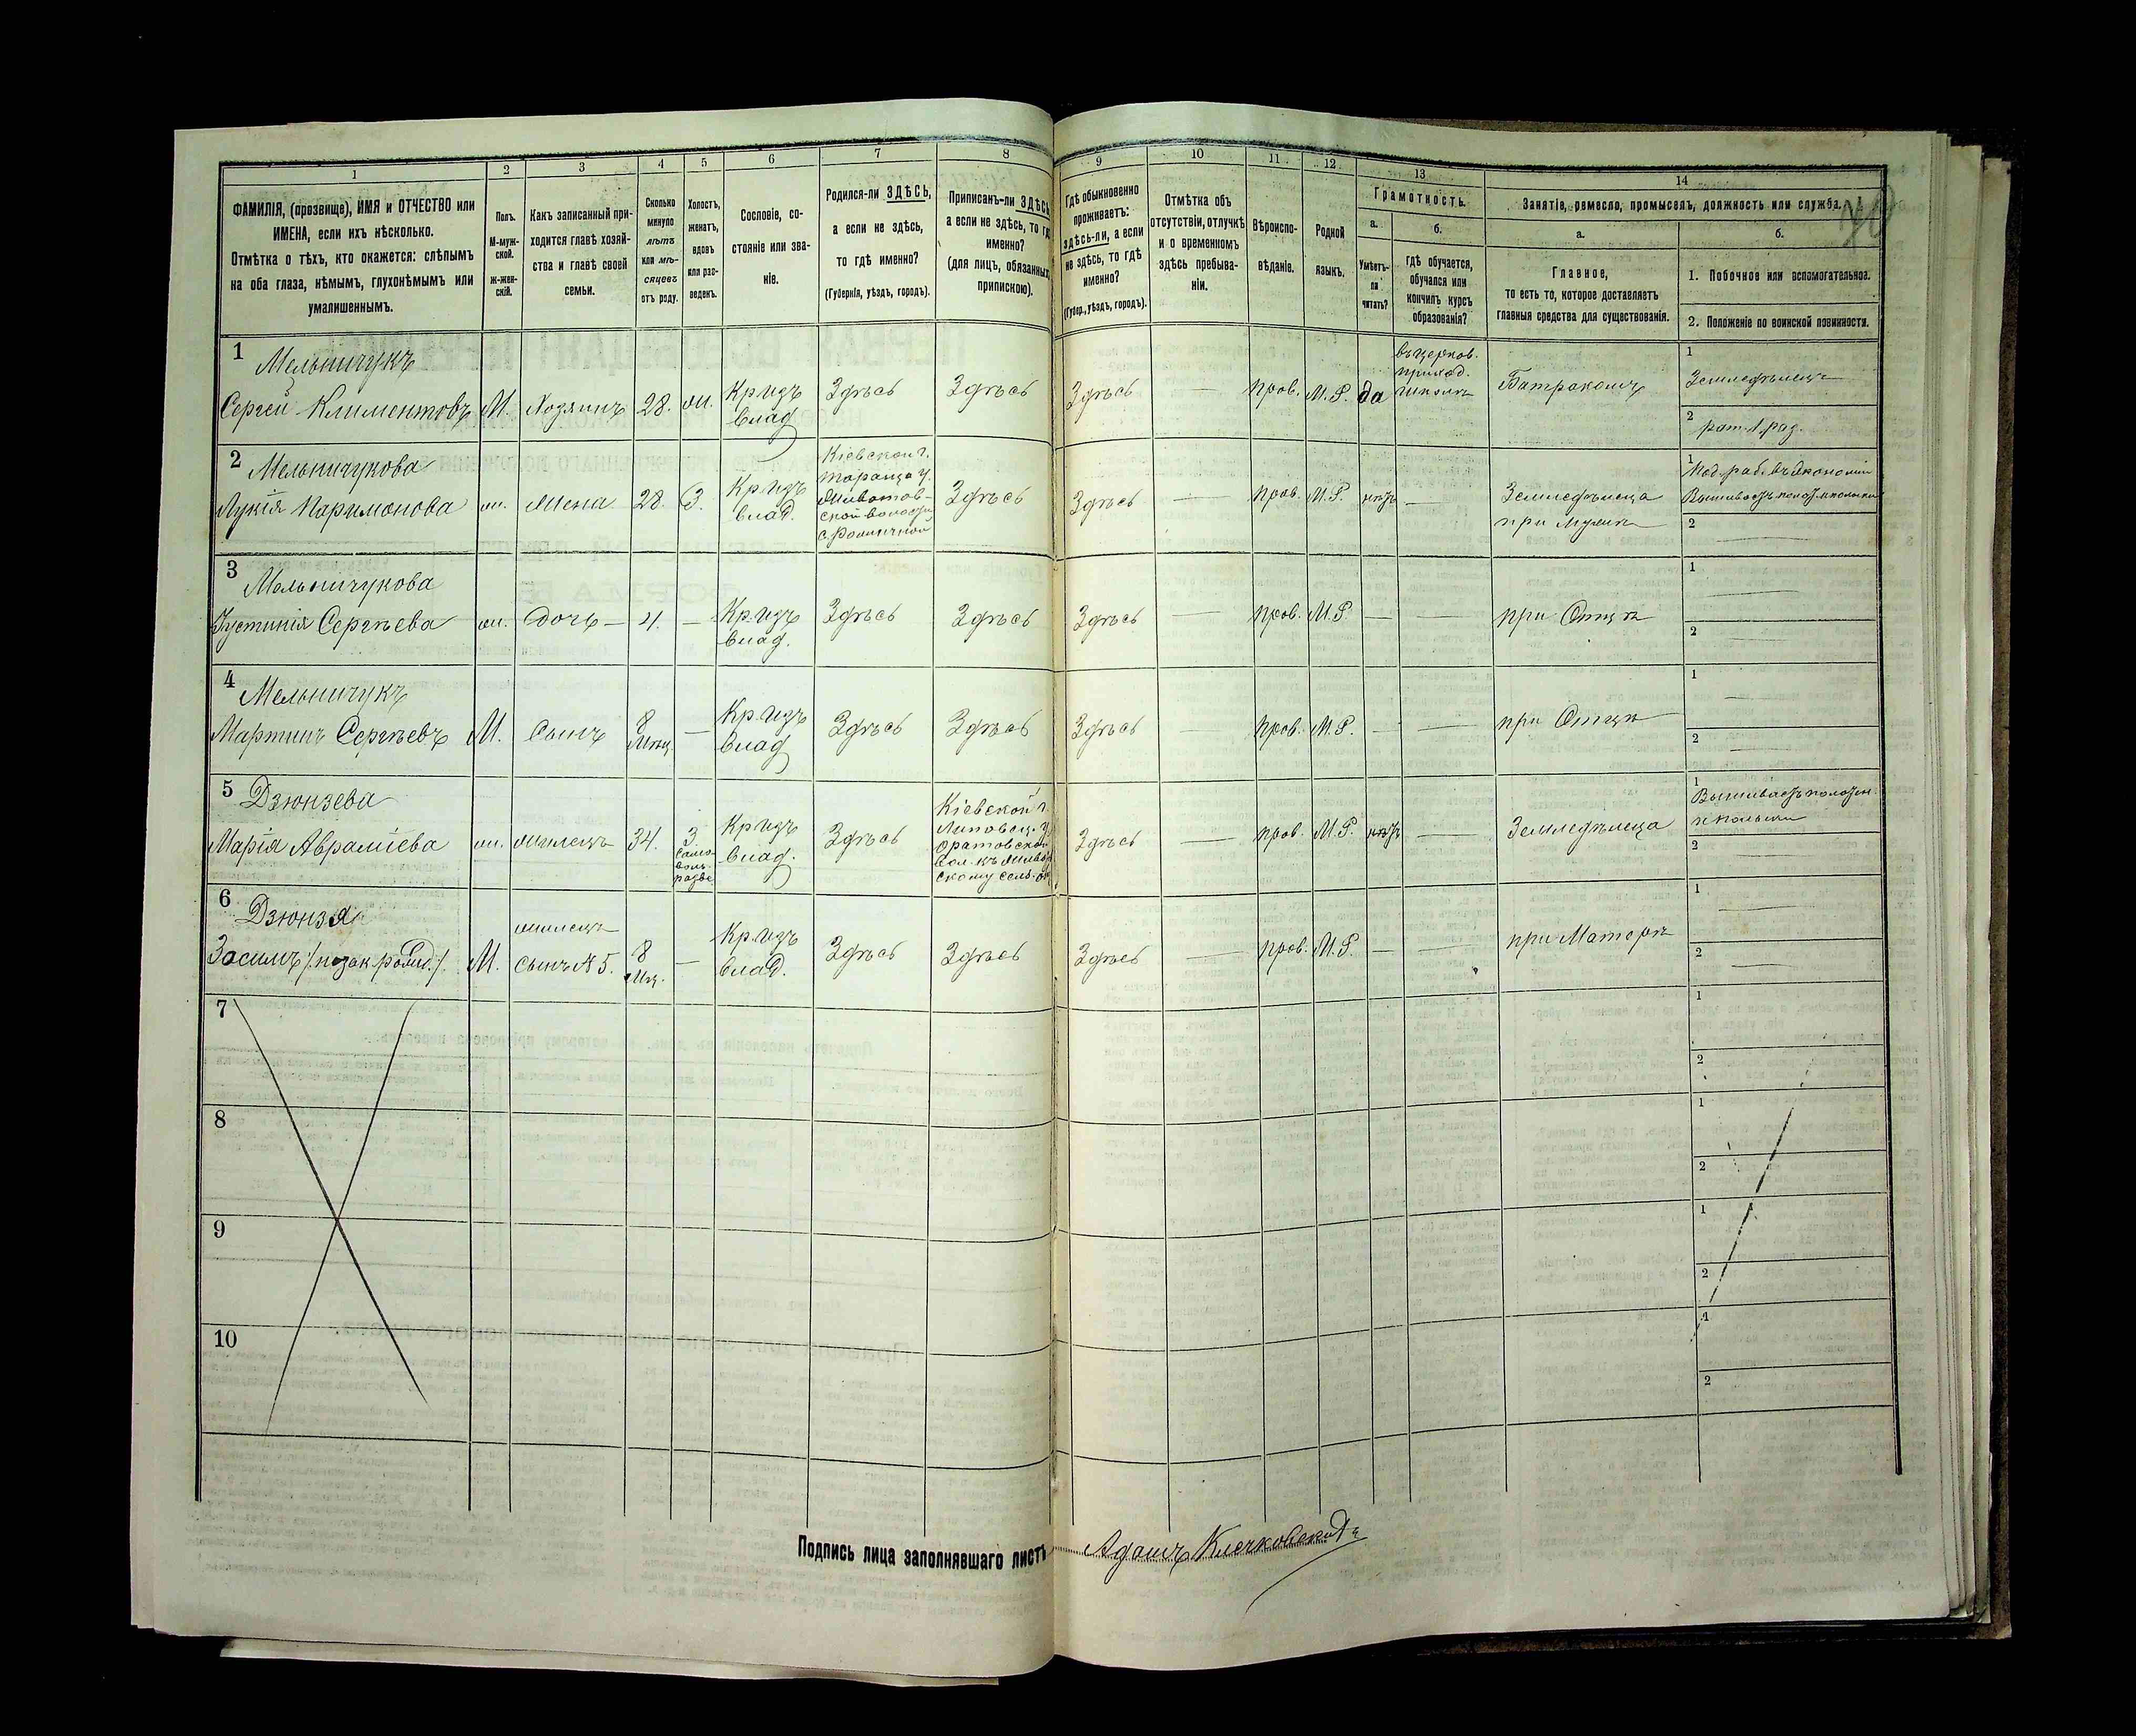 1
2
3
4
5
6
7
8
9
10
11
12
13
14
ФАМИЛІЯ, (прозвище), ИМЯ и ОТЧЕСТВО или
ИМЕНА, если ихъ нѣсколько.
Отмѣтка о тѣхъ, кто окажется: слѣпымъ
на оба глаза, нѣмымъ, глухонѣмымъ или
умалишеннымъ.
Полъ.
М-муж-
ской.
ж-жен-
скій.
Какъ записанный при-
ходится главѣ хозяй-
ства и главѣ своей
семьи.
Сколько
минуло
лѣтъ
или мѣ-
сяцевъ
отъ роду.
Холостъ,
женатъ,
вдовъ
или раз-
веденъ.
Сословіе, со-
стояніе или зва-
ніе.
Родился-ли ЗДѢСЬ,
а если не здѣсь,
то гдѣ именно?
(Губернія, уѣздъ, городъ).
Приписанъ-ли ЗДѢСЬ,
а если не здѣсь, то гдѣ
именно?
(для лицъ, обязанныхъ
припискою).
Гдѣ обыкновенно
проживаетъ:
здѣсь-ли, а если
не здѣсь, то гдѣ
именно?
(Губер., уѣздъ, городъ).
Отмѣтка объ
отсутствіи, отлучкѣ
и о временномъ
здѣсь пребыва-
ніи.
Вѣроиспо-
вѣданіе.
Родной
языкъ.
Грамотность.
а.
Умѣетъ-
ли
читать?
б.
гдѣ обучается,
обучался или
кончилъ курсъ
образованія?
Занятіе, ремесло, промыселъ, должность или служба.
а.
Главное,
то есть то, которое доставляетъ
главныя средства для существованія.
б.
1. Побочное или вспомогательное.
2. Положеніе по воинской повинности.
1 Мельничукъ
Сергей Климентовъ М. Хозяинъ 28. ж. Кр. изъ влад Здѣсь Здѣсь Здѣсь — прав. М.Р. да въ церков. приход. школѣ Батракомъ
1 Земледѣлецъ
2 рат. 1. раз.
2 Мельничукова
Лукія Паримонова ж. Жена 28. З. Кр. изъ влад.
Кіевской г.
Таращ. у.
Животов-
ской волости
Здѣсь Здѣсь — прав. М.Р. нѣтъ —
Земледѣлица
при мужѣ
1
2 —
3 Мельничукова
Устинія Сергѣева ж. дочь — 4. — Кр. изъ влад. Здѣсь Здѣсь Здѣсь — прав. М.Р. — — при Отцѣ
1 —
2 —
4 Мельничукъ
Мартинъ Сергѣевъ М. Сынъ 8 Мѣц. — Кр. изъ влад Здѣсь Здѣсь Здѣсь — прав. М.Р. — — при Отцѣ
1 —
2 —
5 Дзюнзева
Марія Авраміева ж. жилецъ 34. З. Кр. изъ влад. Здѣсь
Кіевской г.
Липовец. у.
Оратовской
Здѣсь — прав. М.Р. нѣтъ — Земледѣлица
1
2 —
6 Дзюнзя
Зосимъ /незак. рожд./. М. жилецъ сынъ № 5. 8 Мц. — Кр. изъ влад. Здѣсь Здѣсь Здѣсь — прав. М.Р. — — при Матерѣ
1 —
2 —
7
1
2
8
1
2
9
1
2
10
1
2
Подпись лица заполнявшаго листъ Адамъ Клечковскій